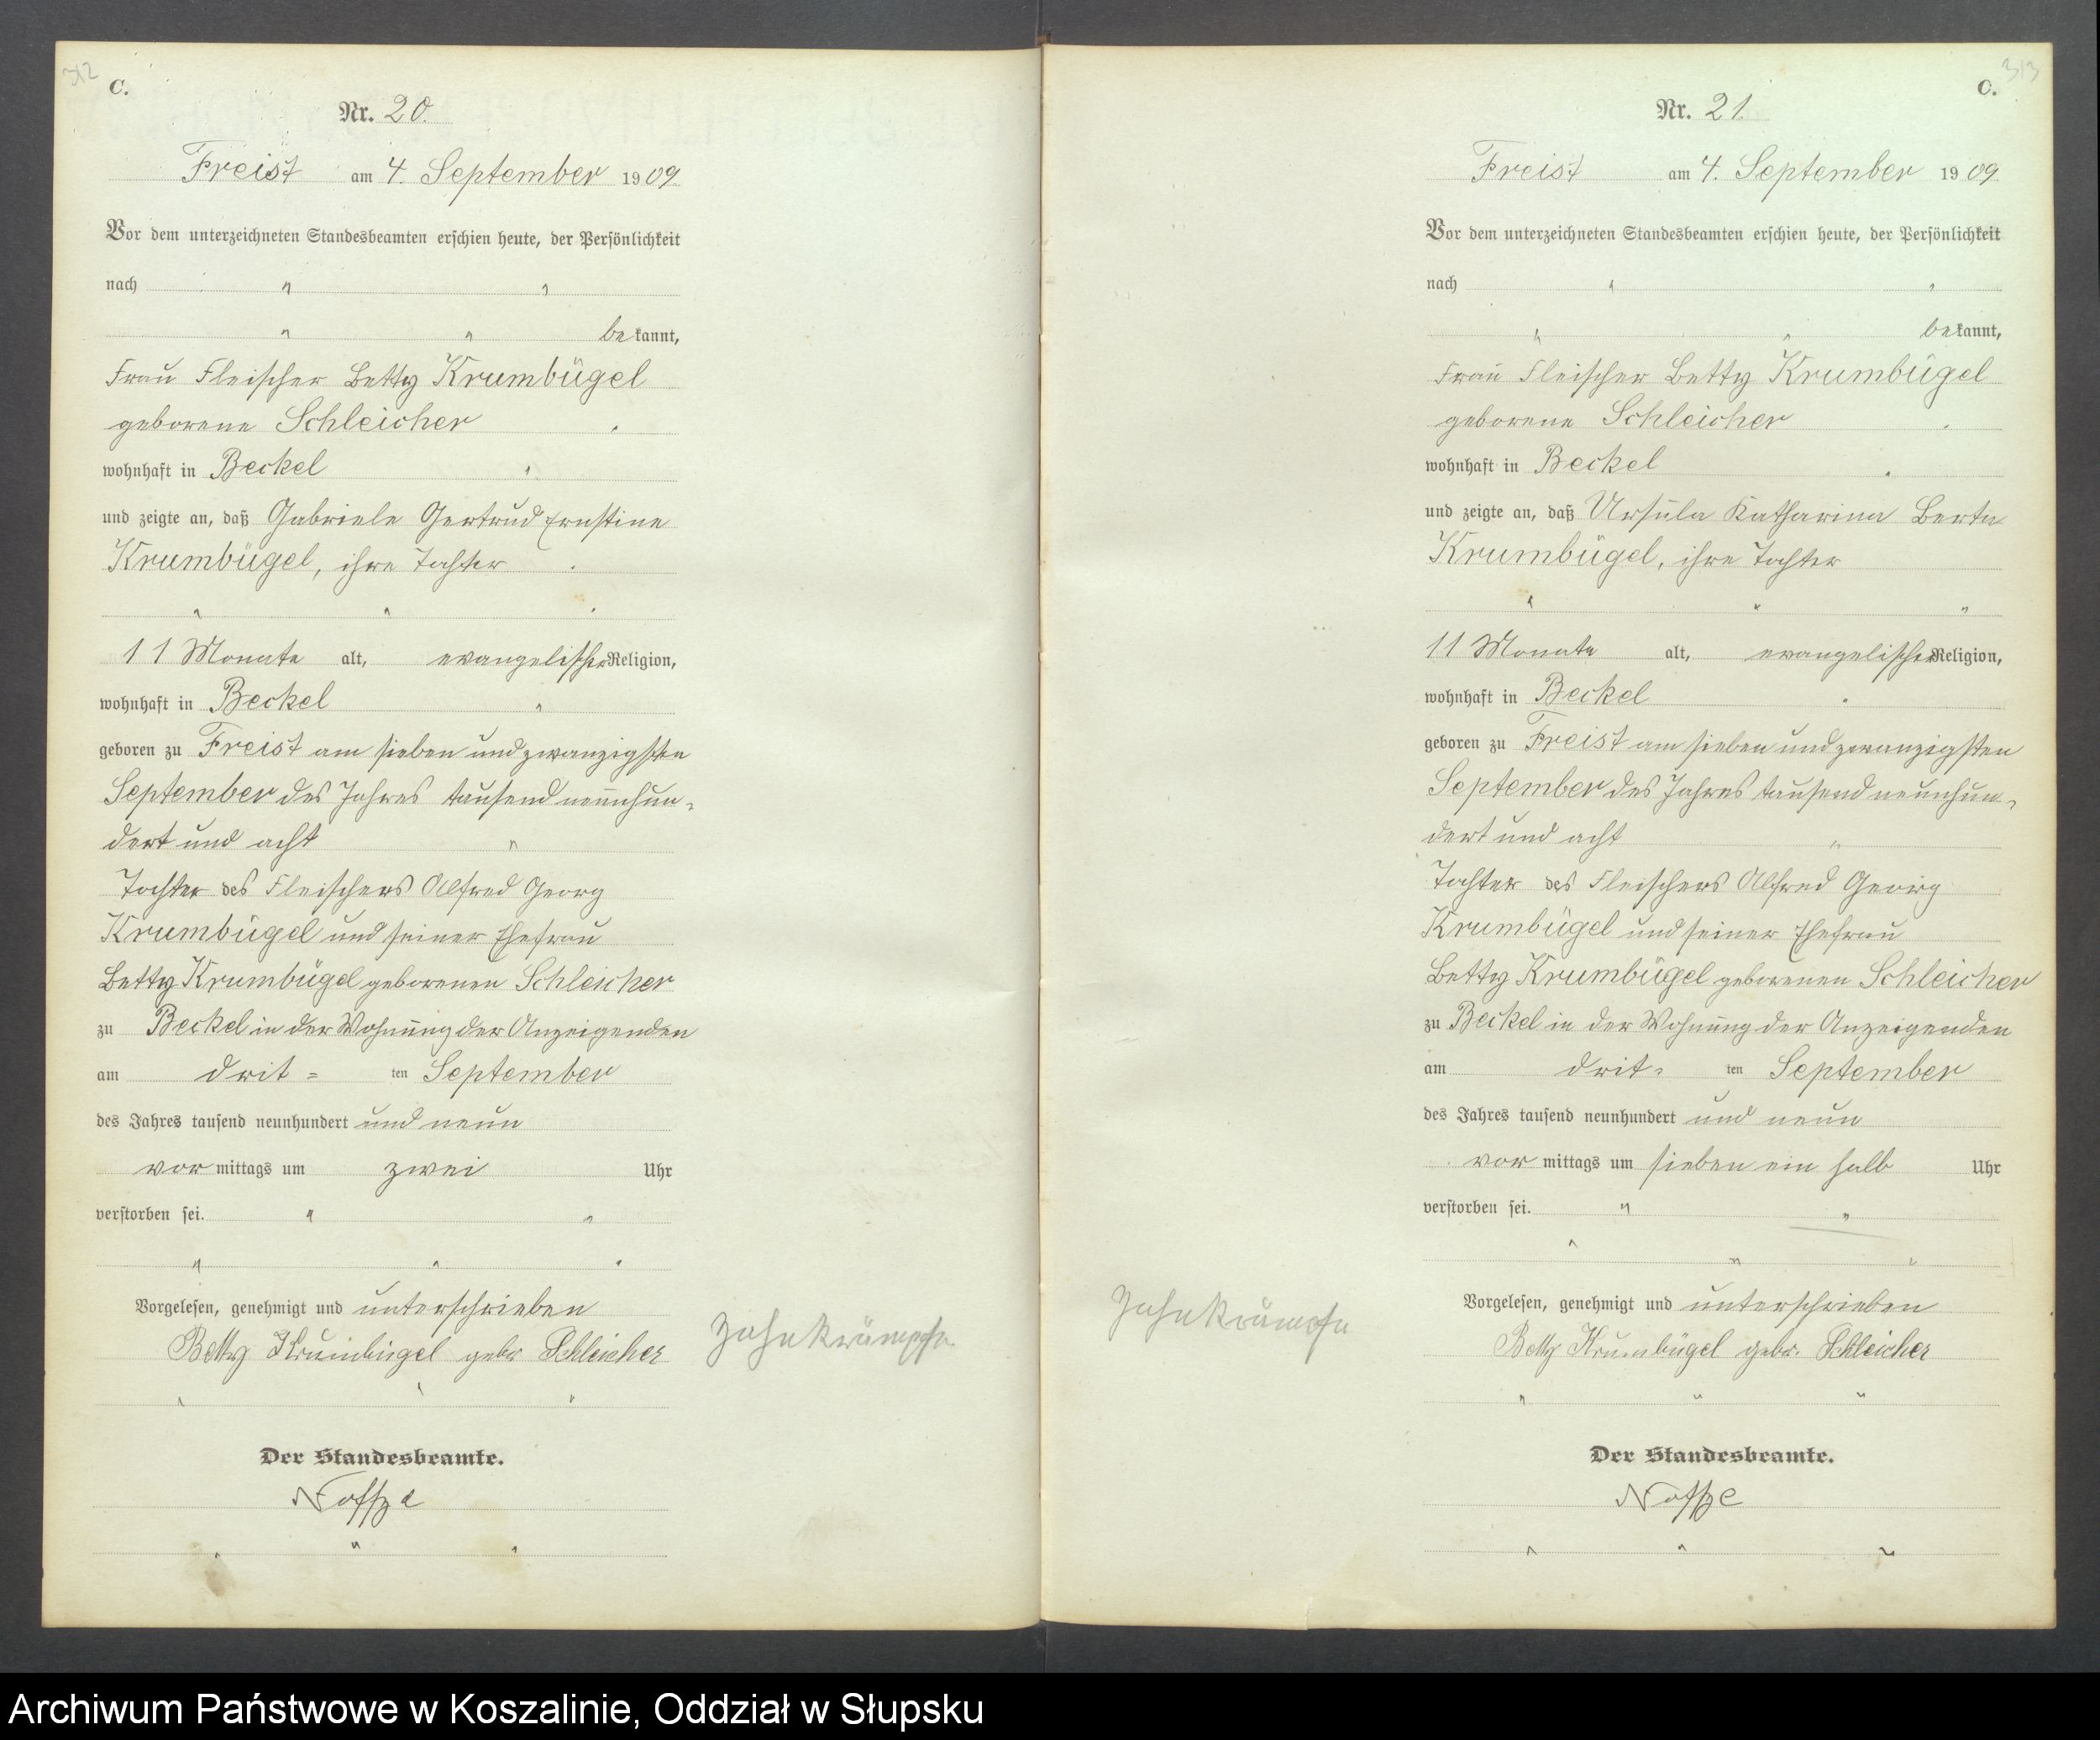 312
C.
Nr. 20.
Freist am 4. September 1909.
Vor dem unterzeichneten Standesbeamten erschien heute, der Persönlichkeit
nach " "
" " bekannt,
Frau Fleischer Betty Krumbügel
geborene Schleicher
wohnhaft in Beckel
und zeigte an, daß Gabriele Gertrud Ernstine
Krumbügel, ihre Tochter
11 Monate alt, evangelischer Religion,
wohnhaft in Beckel
geboren zu Freist am siebenundzwanzigsten
September des Jahres tausend neunhun-
dert und acht
Tochter des Fleischers Alfred Georg
Krumbügel und seiner Ehefrau
Betty Krumbügel geborenen Schleicher
zu Beckel in der Wohnung der Anzeigenden
am drit= ten September
des Jahres tausend neunhundert und neun
vor mittags um zwei Uhr
verstorben sei.
Vorgelesen, genehmigt und unterschrieben
Betty Krumbügel gebor Schleicher
Zahnkrämpfe
Der Standesbeamte.
313
C.
Nr. 21.
Freist am 4. September 1909
Vor dem unterzeichneten Standesbeamten erschien heute, der Persönlichkeit
nach " "
" " bekannt,
Frau Fleischer Betty Krumbügel
geborene Schleicher
wohnhaft in Beckel
und zeigte an, daß Ursula Katharina Berta
Krumbügel, ihre Tochter
11 Monate alt, evangelischer Religion,
wohnhaft in Beckel
geboren zu Freist am siebenundzwanzigsten
September des Jahres tausend neunhun-
dert und acht
Tochter des Fleischers Alfred Georg
Krumbügel und seiner Ehefrau
Betty Krumbügel geborenen Schleicher
zu Beckel in der Wohnung der Anzeigenden
am drit= ten September
des Jahres tausend neunhundert und neun
vor mittags um sieben ein halb Uhr
verstorben sei.
Vorgelesen, genehmigt und unterschrieben
Zahnkrämpfe
Betty Krumbügel gebor. Schleicher
Der Standesbeamte.
Archiwum Państwowe w Koszalinie, Oddział w Słupsku